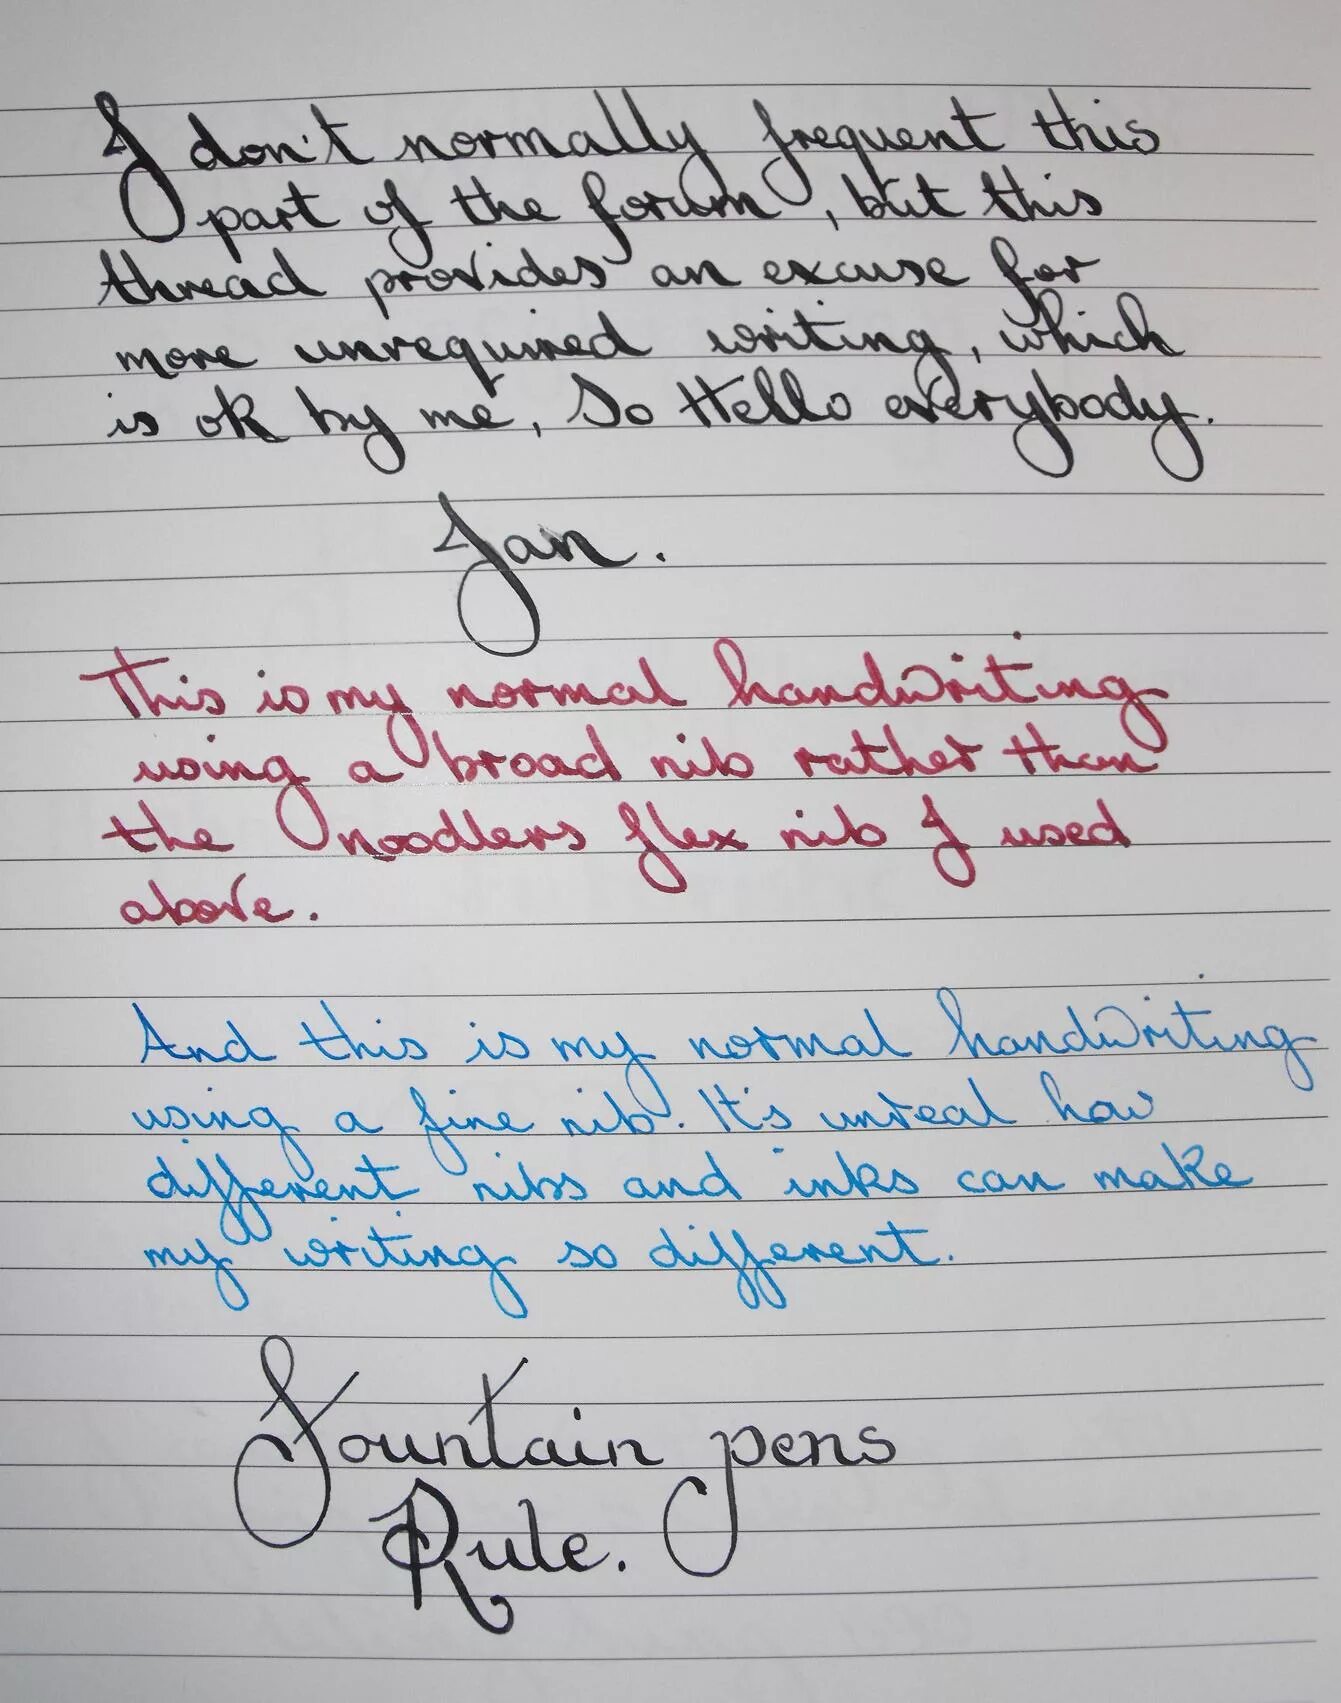 I don't normally frequent this
part of the forum, but this
thread provides an excuse for
more unrequired writing, which
is ok by me, So Hello everybody.
Jan.
This is my normal handwriting
using a broad nib rather than
the noodlers flex nib I used
above.
And this is my normal handwriting
using a fine nib. It's unreal how
different nibs and inks can make
my writing so different.
Fountain pens
Rule.